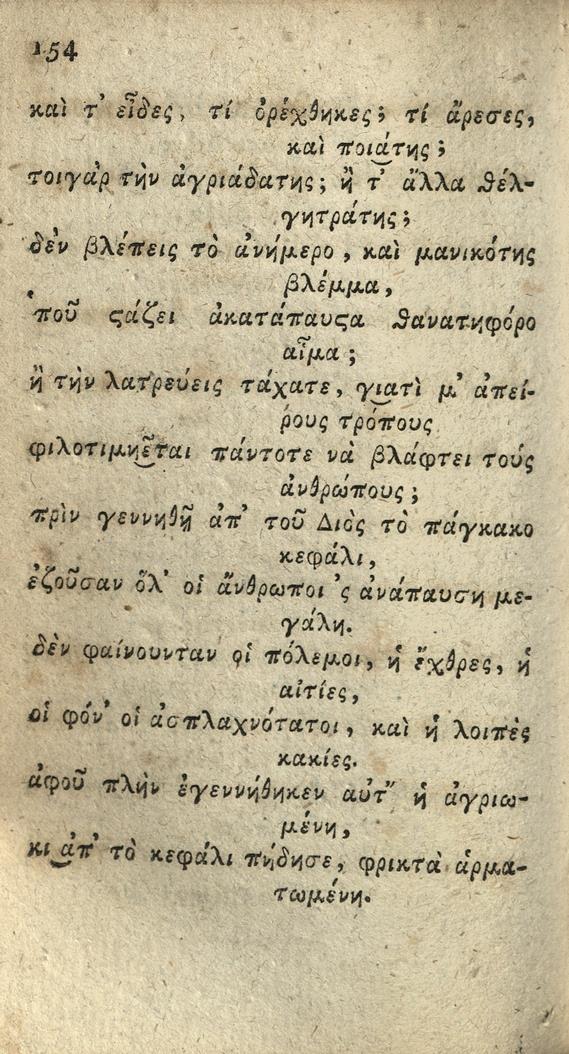 154
καὶ τ' εἶδες, τί ὀρέχθηκες; τί ἄρεσες,
καὶ ποιά‿της;
τοιγὰρ τὴν ἀγριάδατης; ἢ τ' ἄλλα θέλ-
γητράτης;
δὲν βλέπεις τὸ ἀνήμερο, καὶ μανικότης
βλέμμα,
'ποῦ ϛάζει ἀκατάπαυϛα θανατηφόρο
αἷμα;
ἢ τὴν λατρεύεις τάχατε, γι‿ατὶ μ' ἀπεί-
ρους τρόπους
φιλοτιμη‿ε͂ται πάντοτε νὰ βλάφτει τοὺς
ἀνθρώπους;
πρὶν γεννηθῇ ἀπ' τοῦ Διὸς τὸ πάγκακο
κεφάλι,
ἐζοῦσαν ὅλ' οἱ ἄνθρωποι 'ς ἀνάπαυση με-
γάλη.
δὲν φαίνουνταν οἱ πόλεμοι, ἡ ἔχθρες, ἡ
αἰτίες,
οἱ φόν' οἱ ἀσπλαχνότατοι, καὶ ἡ λοιπὲς
κακίες.
ἀφοῦ πλὴν ἐγεννήθηκεν αὐτ" ἡ ἀγριω-
μένη,
κι‿ ἀπ' τὸ κεφάλι πήδησε, φρικτὰ ἁρμα-
τωμένη.